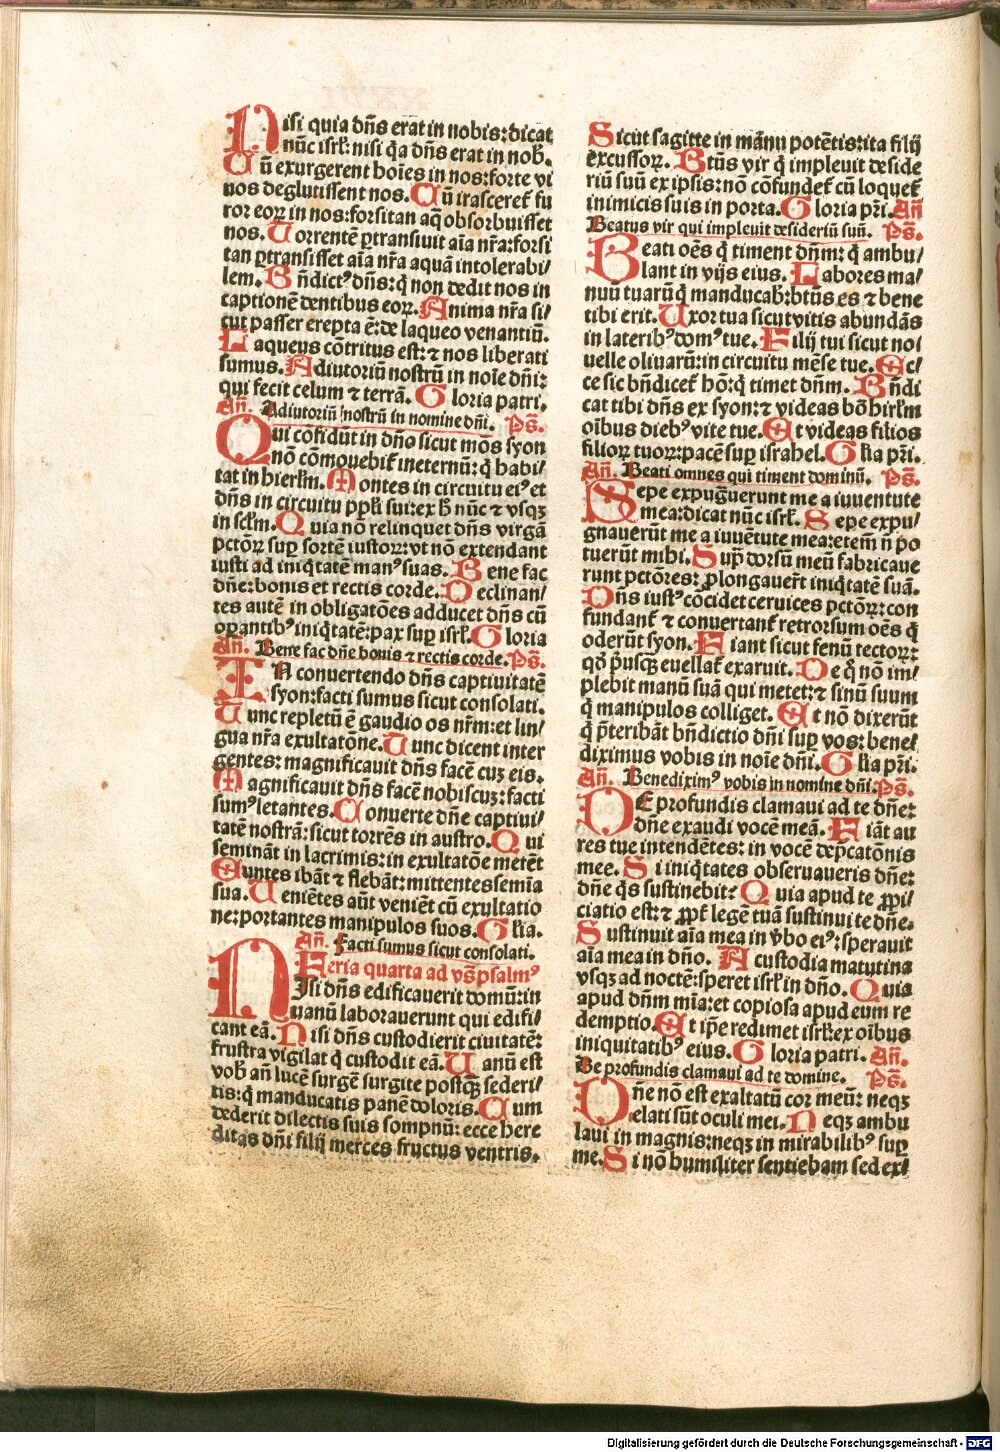 Nisi quia dn̄s erat in nobis: dicat
nūc isrl̄: nisi q̄a dn̄s erat in nob̄.
Cū exurgerent hoīes in nos: forte vi
uos deglutissent nos. Cū irasceret᷑ fu
ror eoꝝ in nos: forsitan aq̄ obsorbuisset
nos. Torrentē ꝑtransiuit aīa nr̄a: forsi
tan ꝑtransisset aīa nr̄a aquā intolerabi/
lem. Bn̄dictꝰ dn̄s: q̄ non dedit nos in
captionē dentibus eoꝝ. Anima nr̄a si/
cut passer erepta ē: de laqueo venantiū.
Laqueus cōtritus est: ⁊ nos liberati
sumus. Adiutoriū nostrū in noīe dn̄i:
qui fecit celum ⁊ terrā. Gloria patri.
Añ. Adiutoriū nostrū in nomine dn̄i. Ps̄.
Qui cōfidūt in dn̄o sicut mōs syon
nō cōmouebit᷑ ineternū: q̄ habi/
tat in hierl̄m. Montes in circuitu eiꝰ et
dn̄s in circuitu ppl̄i sui: ex h̄ nūc ⁊ vsqꝫ
in scl̄m. Quia nō relinquet dn̄s virgā
pctōꝝ suꝑ sortē iustoꝝ: vt nō extendant
iusti ad iniq̄tatē manꝰ suas. Bene fac
dn̄e: bonis et rectis corde. Declinan/
tes autē in obligatōes adducet dn̄s cū
oꝑantibꝰ iniq̄tatē: pax suꝑ isrl̄. Gloria
Añ. Bene fac dn̄e bonis ⁊ rectis corde. Ps̄.
In conuertendo dn̄s captiuitatē
syon: facti sumus sicut consolati.
Tunc repletū ē gaudio os nr̄m: et lin/
gua nr̄a exultatōne. Tunc dicent inter
gentes: magnificauit dn̄s facē cuꝫ eis.
Magnificauit dn̄s facē nobiscuꝫ: facti
sumꝰ letantes. Conuerte dn̄e captiui/
tatē nostrā: sicut torrēs in austro. Qui
semināt in lacrimis: in exultatōe metēt
Euntes ibāt ⁊ flebāt: mittentes semīa
sua. Ueniētes aūt veniēt cū exultatio
ne: portantes manipulos suos. Gl̄ia.
Añ. Facti sumus sicut consolati.
Feria quarta ad vs̄ꝑas psalmꝰ
Nisi dn̄s edificauerit domū: in
uanū laborauerunt qui edifi/
cant eā. Nisi dn̄s custodierit ciuitatē:
frustra vigilat q̄ custodit eā. Uanū est
vob̄ an̄ lucē surgē surgite postqꝫ sederi/
tis: q̄ manducatis panē doloris. Cum
dederit dilectis suis sompnū: ecce here
ditas dn̄i filij merces fructus ventris.
Sicut sagitte in manu potētis: ita filij
excussoꝝ. Btūs vir q̄ impleuit deside
riū suū ex ipsis: nō cōfundet᷑ cū loquet᷑
inimicis suis in porta. Gloria pr̄i. Añ
Beatus vir qui impleuit desideriū suū. Ps̄.
Beati oēs q̄ timent dn̄m: q̄ ambu/
lant in vijs eius. Labores ma/
nuū tuarū q̄ manducab̄: btūs es ⁊ bene
tibi erit. Uxor tua sicut vitis abundās
in lateribꝰ domꝰ tue. Filij tui sicut no/
uelle oliuarū: in circuitu mēse tue. Ec/
ce sic bn̄dicet᷑ hō: q̄ timet dn̄m. Bn̄di
cat tibi dn̄s ex syon: ⁊ videas bōa hirl̄m
oībus diebꝰ vite tue. Et videas filios
filioꝝ tuoꝝ: pacē suꝑ israhel. Gl̄ia pr̄i.
Añ. Beati omnes qui timent dominū. Ps̄.
Sepe expugnauerunt me a iuuentute
mea: dicat nūc isrl̄. Sepe expu/
gnauerūt me a iuuētute mea: etem̄ n̄ po
tuerūt mihi. Supra dorsū meū fabricaue
runt pctōres: ꝓlongauer̄t iniq̄tatē suā.
Dn̄s iustꝰ cōcidet ceruices pctōꝝ: con
fundant᷑ ⁊ conuertant᷑ retrorsum oēs q̄
oderūt syon. Fiant sicut fenū tectoꝝ:
qd̄ p̄usqꝫ euellat᷑ exaruit. De q̊ nō im/
plebit manū suā qui metet: ⁊ sinū suum
q̄ manipulos colliget. Et nō dixerūt
q̄ p̄teribāt bn̄dictio dn̄i suꝑ vos: bene/
diximus vobis in noīe dn̄i. Gl̄ia pr̄i.
Añ. Benediximꝰ vobis in nomine dn̄i. Ps̄.
De profundis clamaui ad te dn̄e:
dn̄e exaudi vocē meā. Fiāt au
res tue intendētes: in vocē dep̄catōnis
mee. Si iniq̄tates obseruaueris dn̄e:
dn̄e q̄s sustinebit? Quia apud te ꝓpi/
ciatio est: ⁊ ꝓpt᷑ legē tuā sustinui te dn̄e.
Sustinuit aīa mea in v̄bo eiꝰ: sperauit
aīa mea in dn̄o. A custodia matutina
vsqꝫ ad noctē: speret isrl̄ in dn̄o. Quia
apud dn̄m mīa: et copiosa apud eum re
demptio. Et ip̄e redimet isrl̄ ex oībus
iniquitatibꝰ eius. Gloria patri. Añ.
De profundis clamaui ad te domine. Ps̄.
Dn̄e nō est exaltatū cor meū: neqꝫ
elati sūt oculi mei. Neqꝫ ambu
laui in magnis: neqꝫ in mirabilibꝰ suꝑ
me. Si nō humiliter sentiebam sed ex/
Digitalisierung gefördert durch die Deutsche Forschungsgemeinschaft - DFG